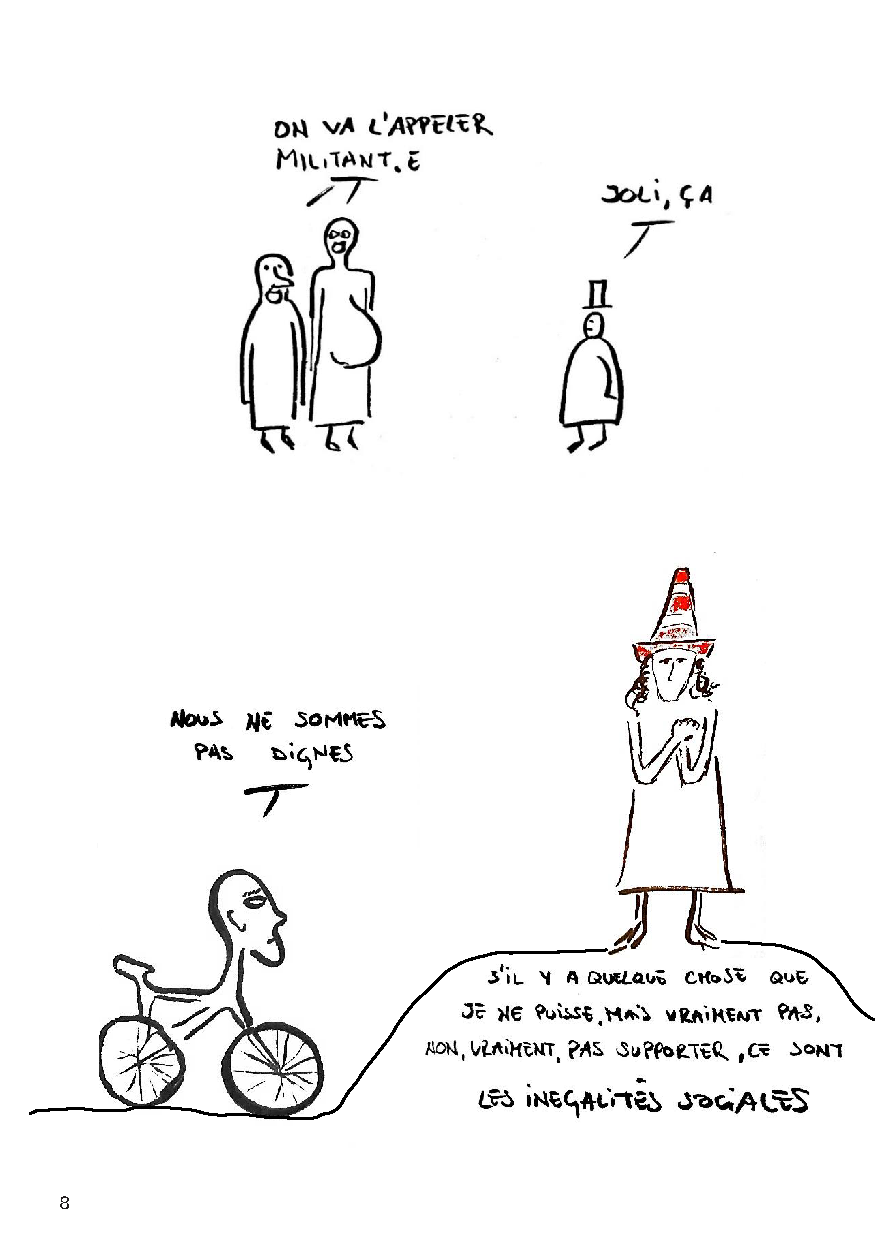 ON VA L'APPELER
MILITANT.E
JOLI, ÇA
NOUS NE SOMMES
PAS DIGNES
S'IL Y A QUELQUE CHOSE QUE
JE NE PUISSE, MAIS VRAIMENT PAS,
NON, VRAIMENT, PAS SUPPORTER, CE SONT
LES INEGALITÉS SOCIALES
8